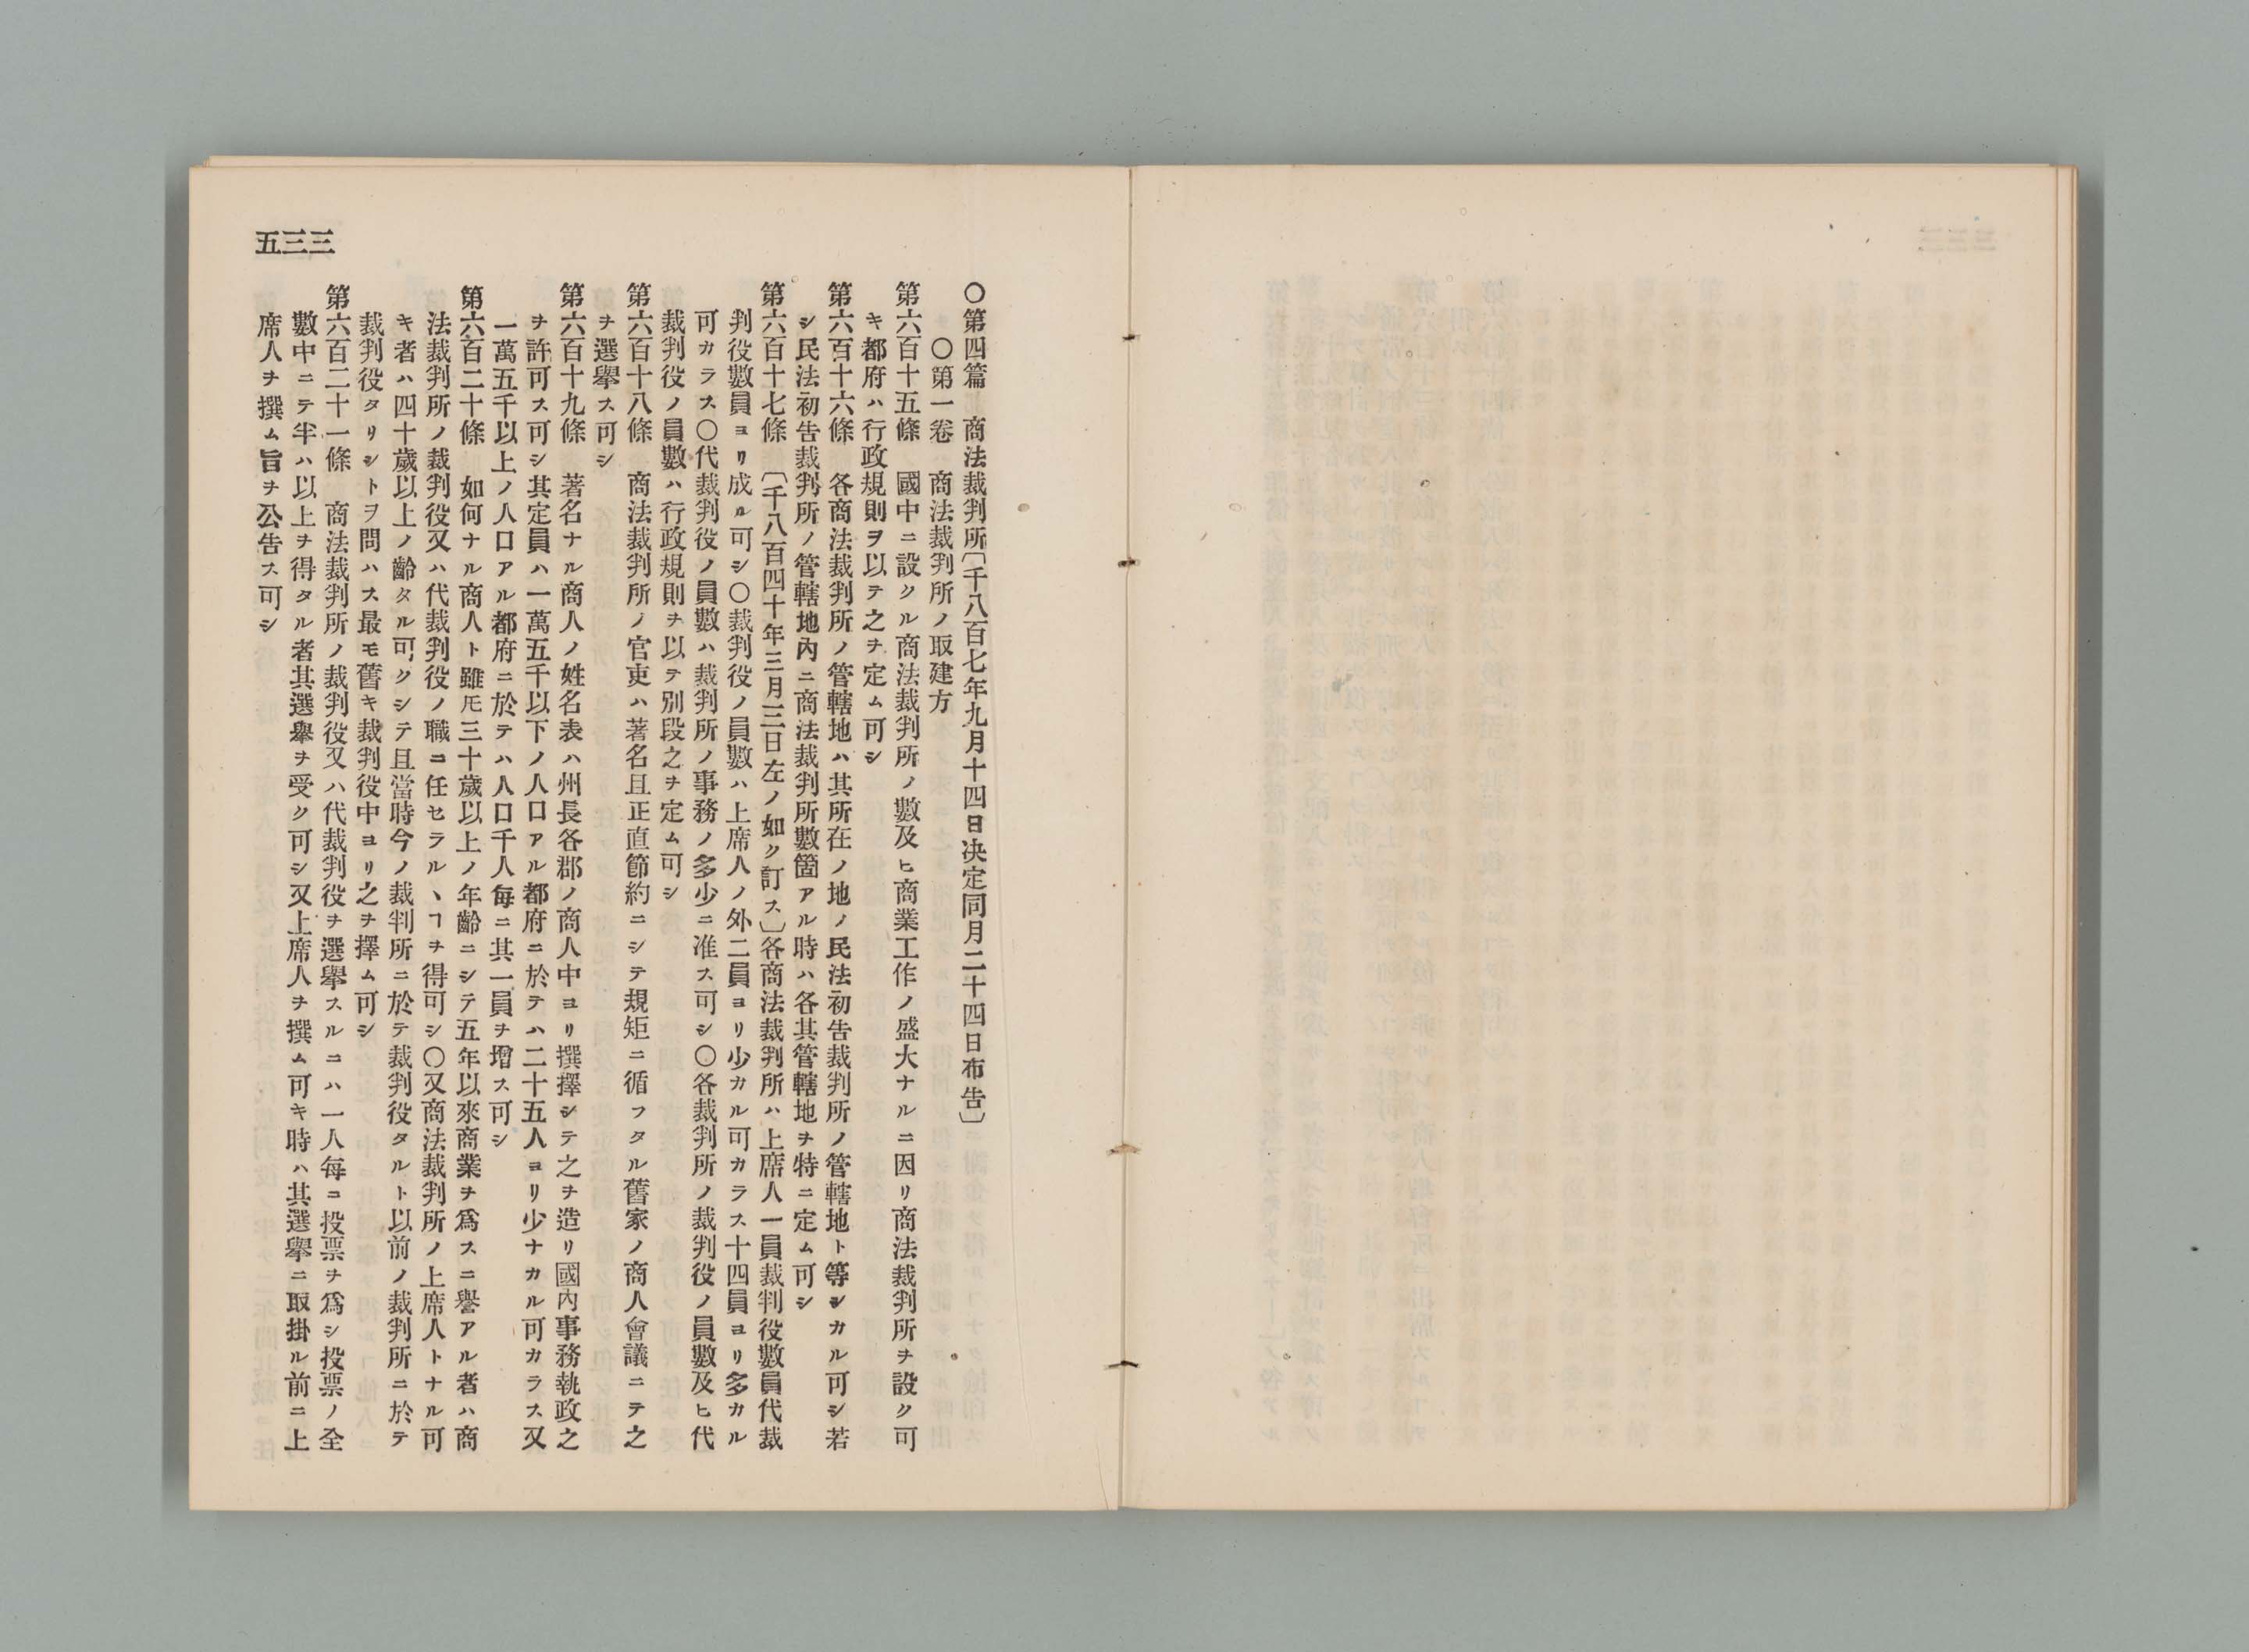 五三三
〇第四篇　商法裁判所〔千八百七年九月十四日決定同月二十四日布告〕
〇第一卷　商法裁判所ノ取建方
第六百十五條　國中ニ設クル商法裁判所ノ數及ヒ商業工作ノ盛大ナルニ因リ商法裁判所ヲ設ク可
キ都府ハ行政規則ヲ以テ之ヲ定ム可シ
第六百十六條　各商法裁判所ノ管轄地ハ其所在ノ地ノ民法初告裁判所ノ管轄地ト等シカル可シ若
シ民法初告裁判所ノ管轄地內ニ商法裁判所數箇アル時ハ各其管轄地ヲ特ニ定ム可シ
第六百十七條　〔千八百四十年三月三日左ノ如ク訂ス〕各商法裁判所ハ上席人一員裁判役數員代裁
判役數員ヨリ成ル可シ〇裁判役ノ員數ハ上席人ノ外二員ヨリ少カル可カラス十四員ヨリ多カル
可カラス〇代裁判役ノ員數ハ裁判所ノ事務ノ多少ニ准ス可シ〇各裁判所ノ裁判役ノ員數及ヒ代
裁判役ノ員數ハ行政規則ヲ以テ別段之ヲ定ム可シ
第六百十八條　商法裁判所ノ官吏ハ著名且正直節約ニシテ規矩ニ循フタル舊家ノ商人會議ニテ之
ヲ選擧ス可シ
第六百十九條　著名ナル商人ノ姓名表ハ州長各郡ノ商人中ヨリ撰擇シテ之ヲ造リ國內事務執政之
ヲ許可ス可シ其定員ハ一萬五千以下ノ人口アル都府ニ於テハ二十五人ヨリ少ナカル可カラス又
一萬五千以上ノ人口アル都府ニ於テハ人口千人每ニ其一員ヲ增ス可シ
第六百二十條　如何ナル商人ト雖𪜈三十歲以上ノ年齡ニシテ五年以來商業ヲ爲スニ譽アル者ハ商
法裁判所ノ裁判役又ハ代裁判役ノ職ニ任セラルヽヿヲ得可シ〇又商法裁判所ノ上席人トナル可
キ者ハ四十歲以上ノ齡タル可クシテ且當時今ノ裁判所ニ於テ裁判役タルト以前ノ裁判所ニ於テ
裁判役タリシトヲ問ハス最モ舊キ裁判役中ヨリ之ヲ擇ム可シ
第六百二十一條　商法裁判所ノ裁判役又ハ代裁判役ヲ選擧スルニハ一人每ニ投票ヲ爲シ投票ノ全
數中ニテ半ハ以上ヲ得タル者其選擧ヲ受ク可シ又上席人ヲ撰ム可キ時ハ其選擧ニ取掛ル前ニ上
席人ヲ撰ム旨ヲ公告ス可シ